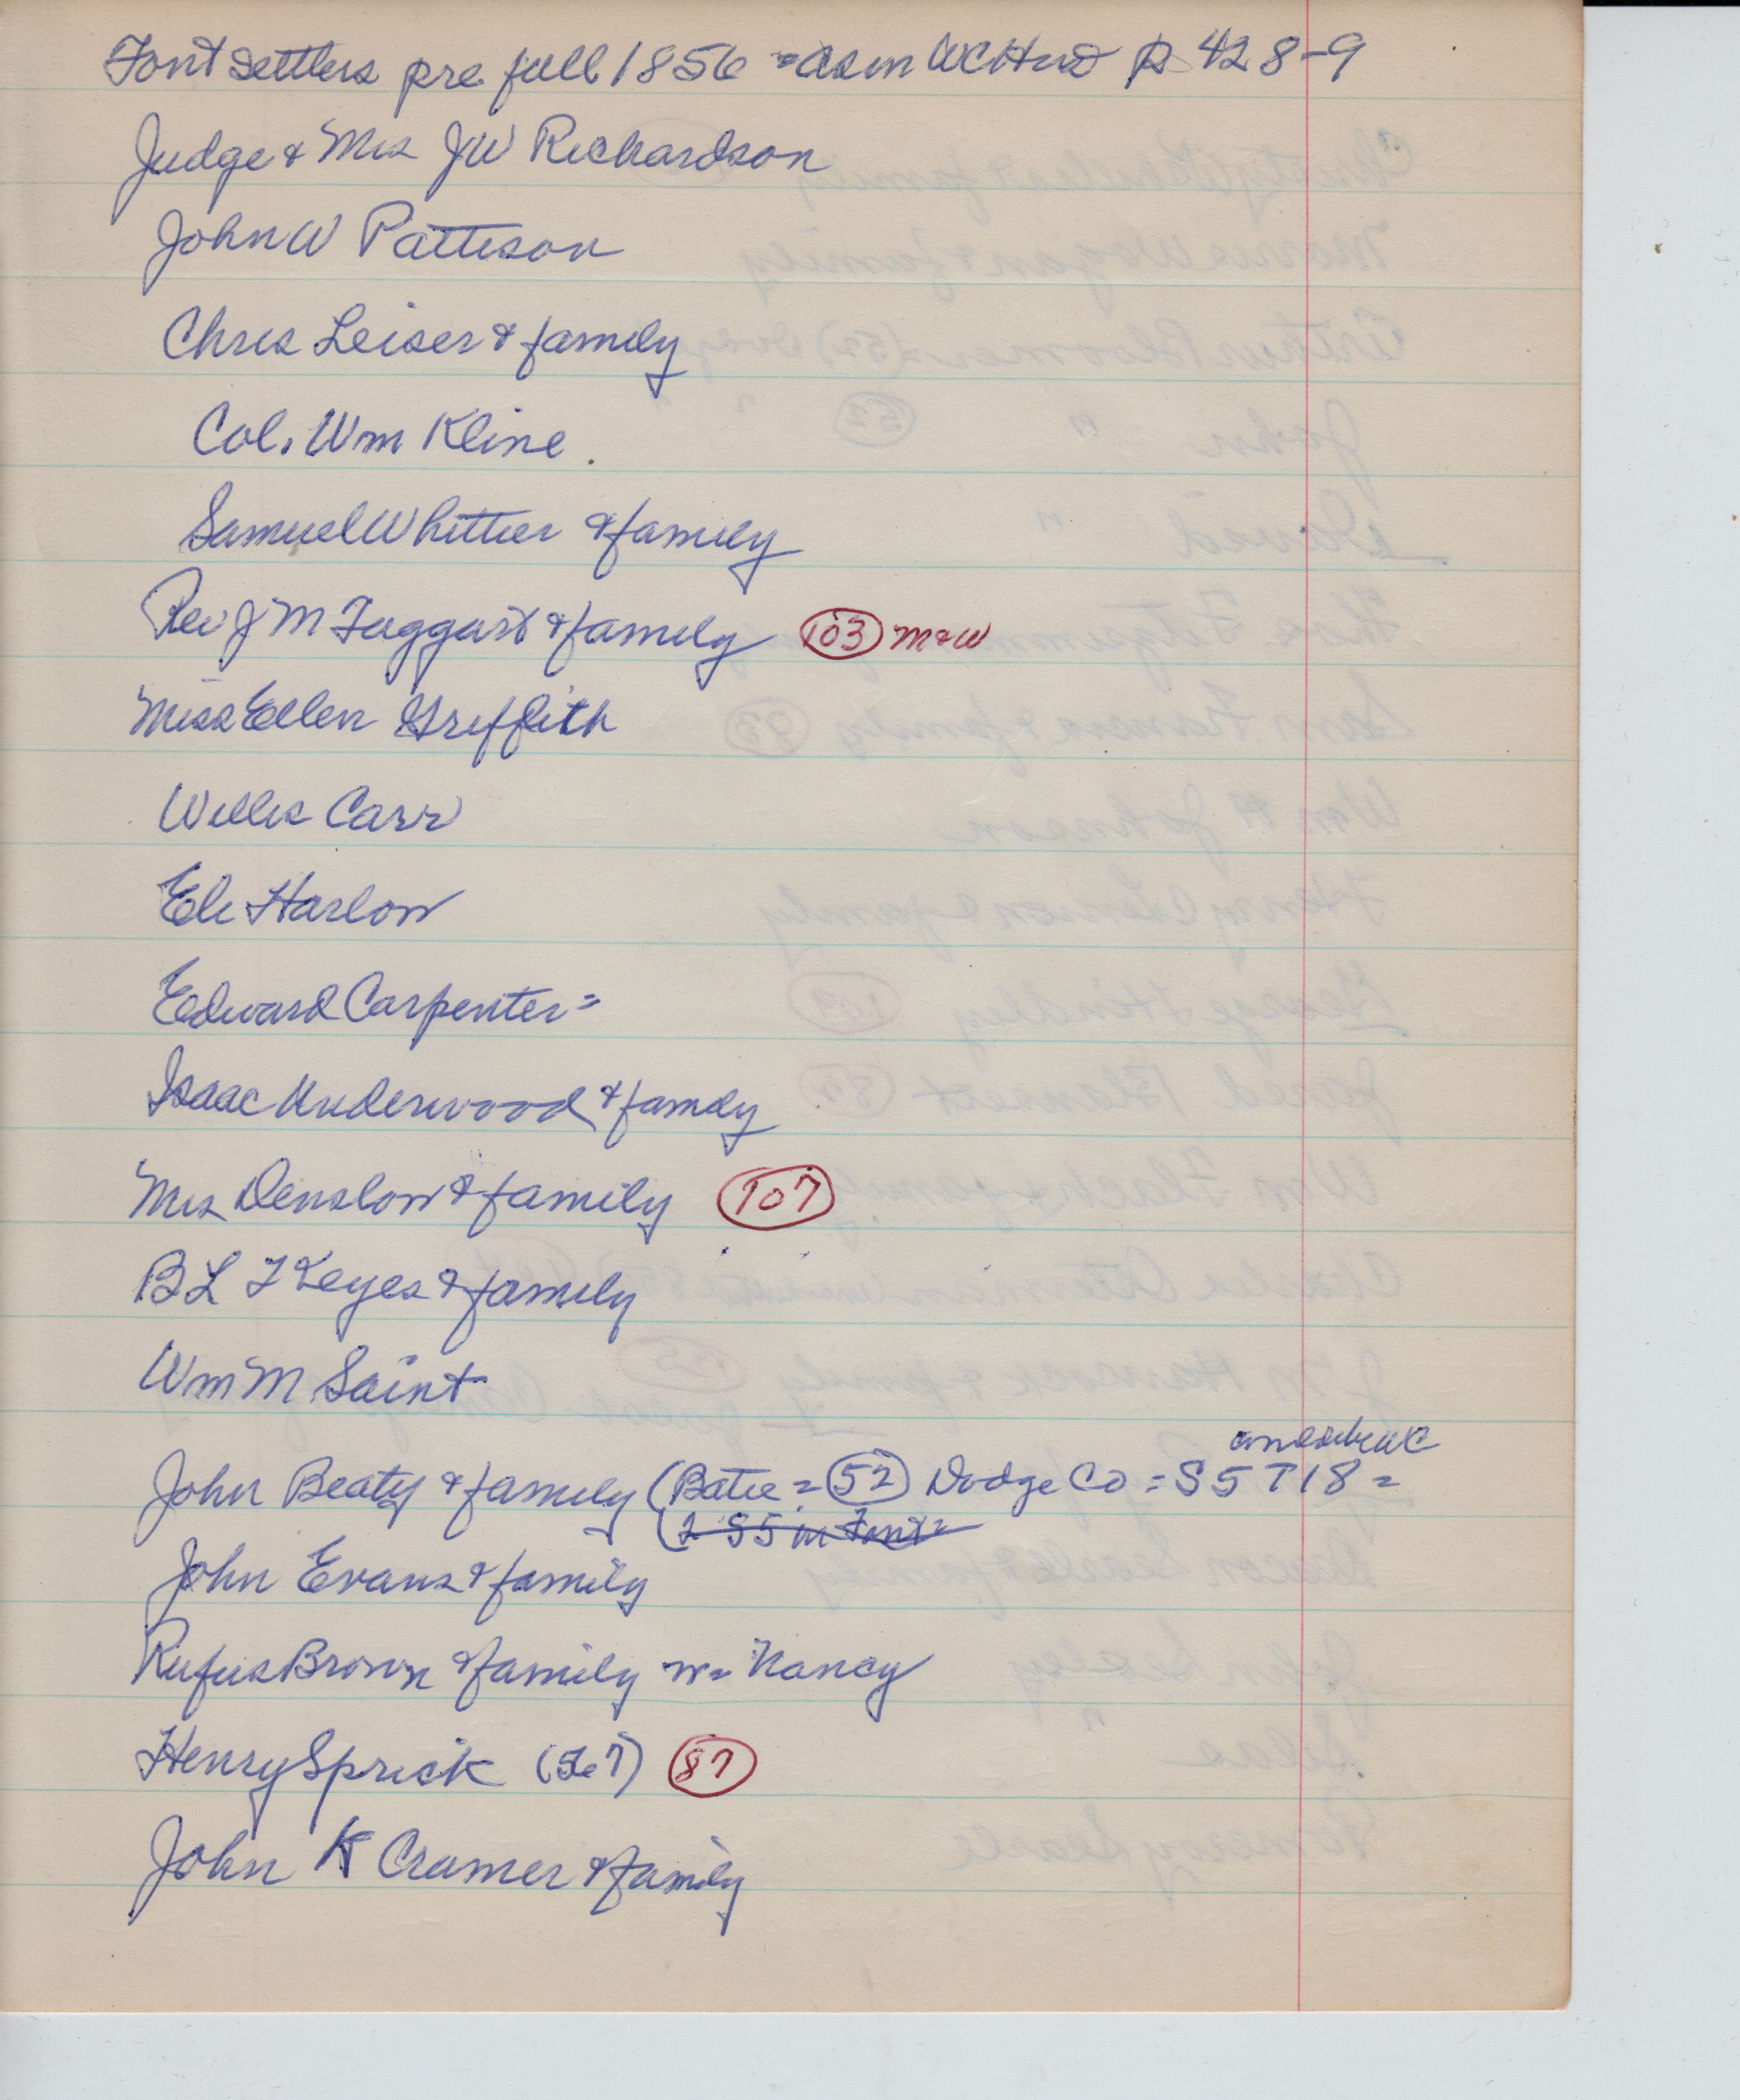 Font settlers pre fall 1856 = as in WCHist p 428-9
Judge & Mrs JW Richardson
John W Pattison
Chris Leiser & family
Col. Wm Kline
Samuel Whittier & family
Rev J M Taggart & family 103 M & W
Miss Ellen Griffith
Willis Carr
Eli Harlow
Edward Carpenter =
Isaac Underwood & family
Mrs Denslow & family 107
B L T Keyes & family
Wm M Saint
John Beaty & family (Batie = 52 Dodge Co = S5 T18 =
(2 S5 in Font =
John Evans & family
Rufus Brown & family w = Nancy
Henry Sprick 87
John K Cramer & family